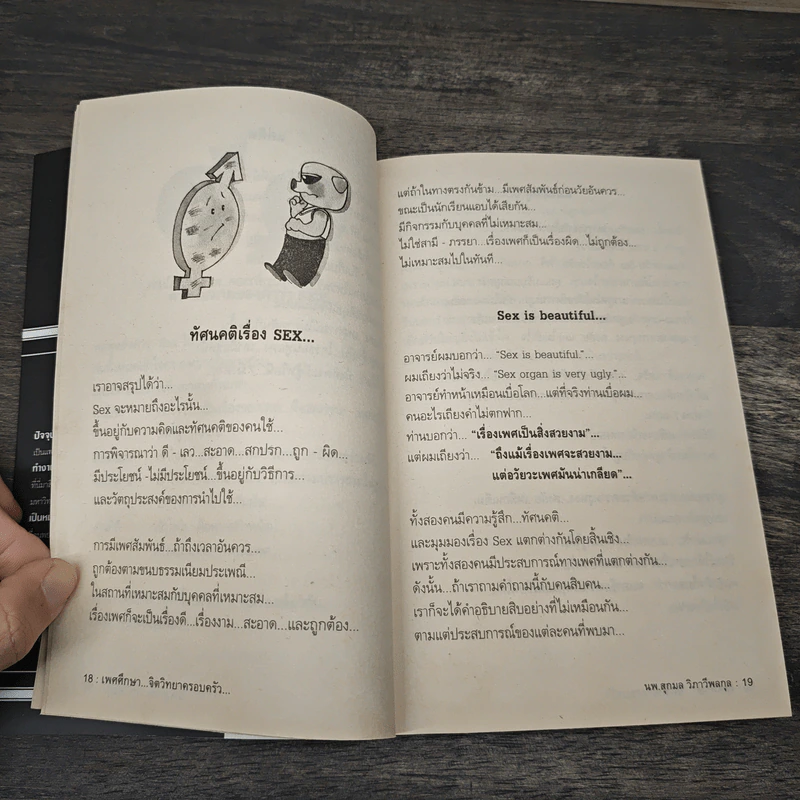 ทัศนคติเรื่อง SEX...
เราอาจสรุปได้ว่า...
Sex จะหมายถึงอะไรนั้น...
ขึ้นอยู่กับความคิดและทัศนคติของคนใช้...
การพิจารณาว่า ดี - เลว...สะอาด...สกปรก...ถูก - ผิด...
มีประโยชน์ -ไม่มีประโยชน์...ขึ้นอยู่กับวิธีการ...
และวัตถุประสงค์ของการนำไปใช้...
การมีเพศสัมพันธ์...ถ้าถึงเวลาอันควร...
ถูกต้องตามขนบธรรมเนียมประเพณี...
ในสถานที่เหมาะสมกับบุคคลที่เหมาะสม...
เรื่องเพศก็จะเป็นเรื่องดี...เรื่องงาม...สะอาด...และถูกต้อง...
18 : เพศศึกษา...จิตวิทยาครอบครัว...
แต่ถ้าในทางตรงกันข้าม...มีเพศสัมพันธ์ก่อนวัยอันควร...
ขณะเป็นนักเรียนแอบได้เสียกัน...
มีกิจกรรมกับบุคคลที่ไม่เหมาะสม...
ไม่ใช่สามี - ภรรยา...เรื่องเพศก็เป็นเรื่องผิด...ไม่ถูกต้อง...
ไม่เหมาะสมไปในทันที...
Sex is beautiful...
อาจารย์ผมบอกว่า... “Sex is beautiful.”...
ผมเถียงว่าไม่จริง... “Sex organ is very ugly.”...
อาจารย์ทำหน้าเหมือนเบื่อโลก...แต่ที่จริงท่านเบื่อผม...
คนอะไรเถียงคำไม่ตกฟาก...
ท่านบอกว่า... “เรื่องเพศเป็นสิ่งสวยงาม”...
แต่ผมเถียงว่า... “ถึงแม้เรื่องเพศจะสวยงาม...
แต่อวัยวะเพศมันน่าเกลียด”...
ทั้งสองคนมีความรู้สึก...ทัศนคติ...
และมุมมองเรื่อง Sex แตกต่างกันโดยสิ้นเชิง...
เพราะทั้งสองคนมีประสบการณ์ทางเพศที่แตกต่างกัน...
ดังนั้น...ถ้าเราถามคำถามนี้กับคนสิบคน...
เราก็จะได้คำอธิบายสิบอย่างที่ไม่เหมือนกัน...
ตามแต่ประสบการณ์ของแต่ละคนที่พบมา...
นพ.สุกมล วิภาวีพลกุล : 19